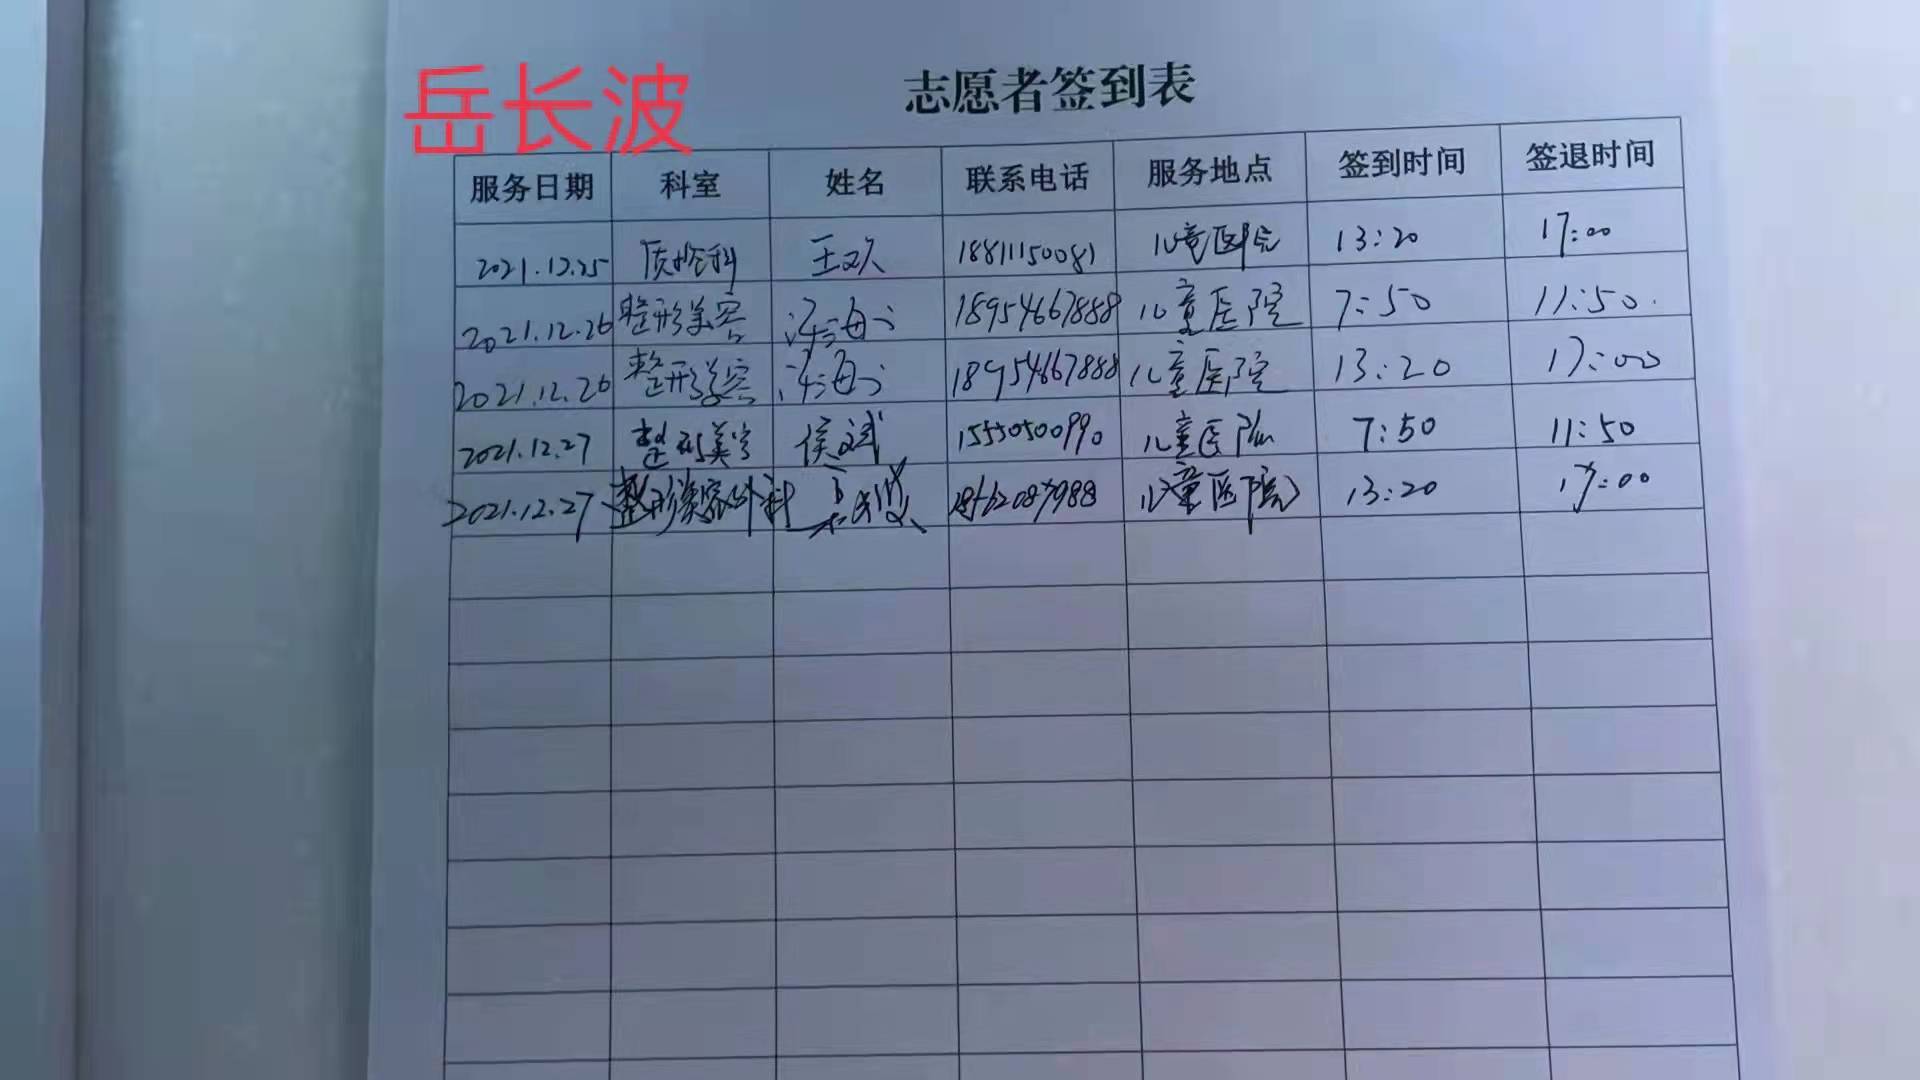 岳长波
志愿者签到表
服务日期 科室 姓名 联系电话 服务地点 签到时间 签退时间
2021.12.25 质控科 王双久 18811150081 儿童医院 13:20 17:00
2021.12.26 整形美容 18954667888 儿童医院 7:50 11:50.
2021.12.26 整形美容 18954667888 儿童医院 13:20 17:00
2021.12.27 整形美容 侯斌 15550500990 儿童医院 7:50 11:50
2021.12.27 整形美容外科 儿童医院 13:20 17:00